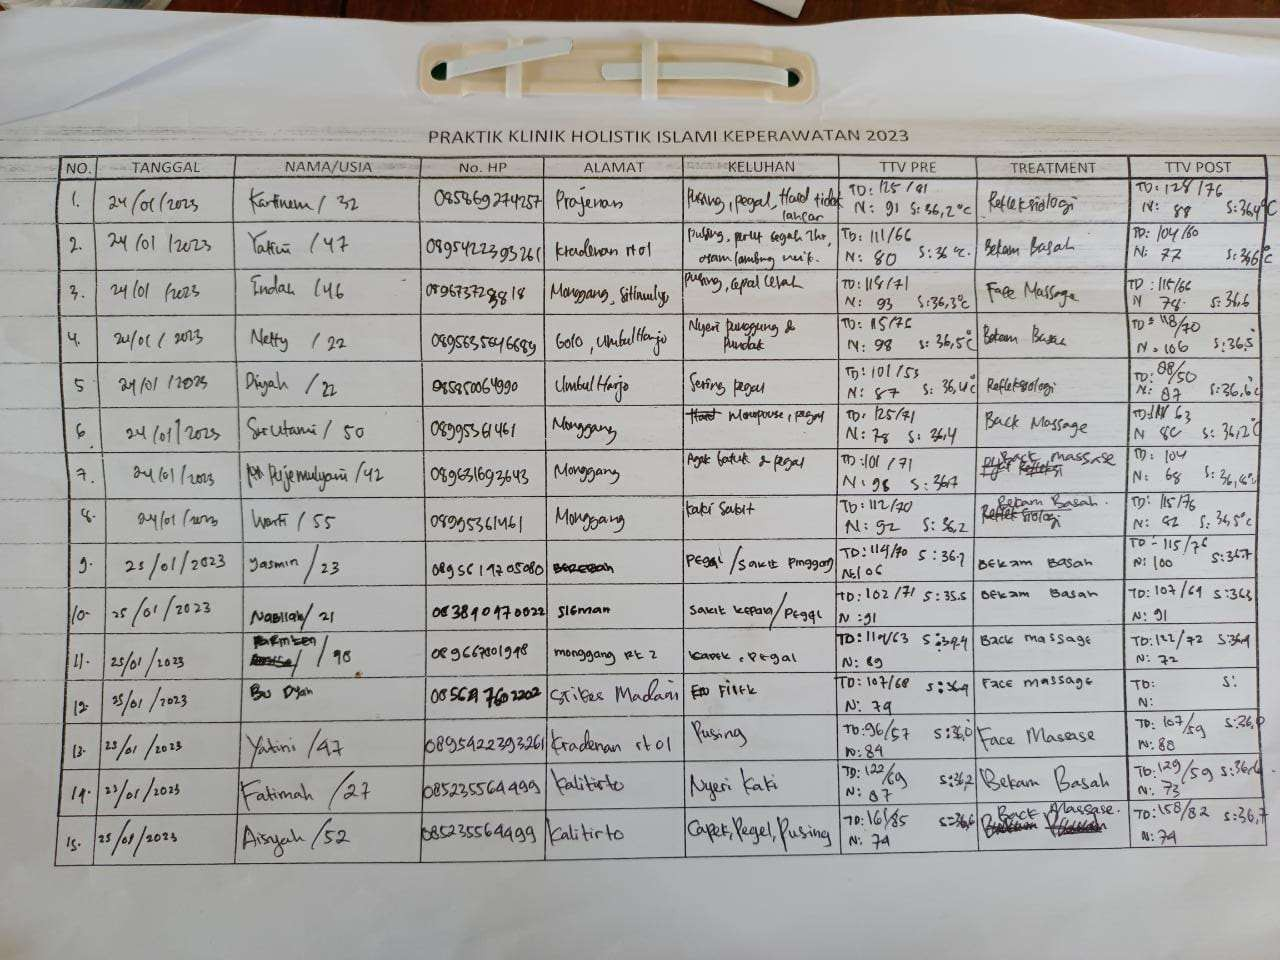 PRAKTIK KLINIK HOLISTIK ISLAMI KEPERAWATAN 2023
NO. TANGGAL NAMA/USIA No. HP ALAMAT KELUHAN TTV PRE TREATMENT TTV POST
1. 24/01/2023 Kartinem / 32 085869274257 Projenan Pusing, pegal, Haid tidak lancar TD: 125/81 N: 91 S: 36,2°C Refleksiologi TD: 128/76 N: 88 S: 36,4°C
2. 24/01/2023 Yatini /47 0895422393261 Kradenan rt01 pusing, perut asam lambung naik. TD: 111/66 N: 80 S: 36°C. Bekam Basah TD: 104/80 N: 77 S: 36°C
3. 24/01/2023 Endah /46 Monggang, Sitimulyo pusing, cepat lelah TD: 118/71 N: 93 S: 36,3°C Face Massage TD: 115/66 N 78. S: 36,6
4. 24/01/2023 Netty / 22 Golo, UmbulHarjo Nyeri punggung & Pundak TD: 115/76 N: 98 S: 36,5°C Bekam Basah TD: 118/70 N. 106 S: 36,5
5 24/01/2023 Diyah /22 085850064990 UmbulHarjo Sering pegal TD: 101/53 N: 87 S: 36,4°C Refleksiologi TD: 88/50 N: 87 S: 36,6°C
6. 24/01/2023 Sri Utami / 50 08995361461 Monggang Menopouse, pegal TD: 125/71 N: 78 S: 36,4 Back Massage TD: 63 N 80 S: 36,2°C
7. 24/01/2023 Pujemulyani /42 089631693643 Monggang Agak batuk & pegal TD: 101 /71 N: 98 S: 36,7 Back massase TD: 104 N: 68 S: 36,8°C
8. 24/01/2023 Warti / 55 08995361461 Monggang kaki Sakit TD: 112/70 N: 92 S: 36,2 Bekam Basah. TD: 115/76 N: 82 S: 36,5°C
9. 25/01/2023 Yasmin /23 0895619705080 BEREBAH PEGAL /SAKIT PINGGANG TD: 114/70 S: 36.7 N: 106 BEKAM BASAH TD - 115/76 N: 100 S: 36.7
10. 25/01/2023 NABILLAH/ 21 083890470022 SLEMAN SAKIT KEPALA /PEGAL TD: 102/71 S: 35.5 N: 91 BEKAM BASAH TD: 107/69 S: 36.3 N: 91
11. 25/01/2023 / 98 089667801948 monggang Rt 2 Kapek, Pegal TD: 119/63 N: 89 Back massage TD: 122/72 S: 36.9 N: 72
12. 25/01/2023 Bu Dyah Stikes Madani Filek TD: 107/68 S: 36.9 N: 79 Face massage TD: S: N:
13. 25/01/2023 Yatini /47 0895422393261 Kradenan rt01 Pusing TD: 96/57 S: 36,0 N: 84 Face Massase TD: 107/59 S: 36,0 N: 80
14. 25/01/2023 Fatimah /27 085235564499 Kalitirto Nyeri Kaki TD: 122/69 S: 36,2 N: 87 Bekam Basah TD: 129/59 S: 36,6 N: 73
15. 25/01/2023 Aisyah /52 085235564499 Kalitirto Capek, Pegel, Pusing TD: 161/85 S: 36,6 N: 74 Back Massase. TD: 158/82 S: 36,7 N: 74